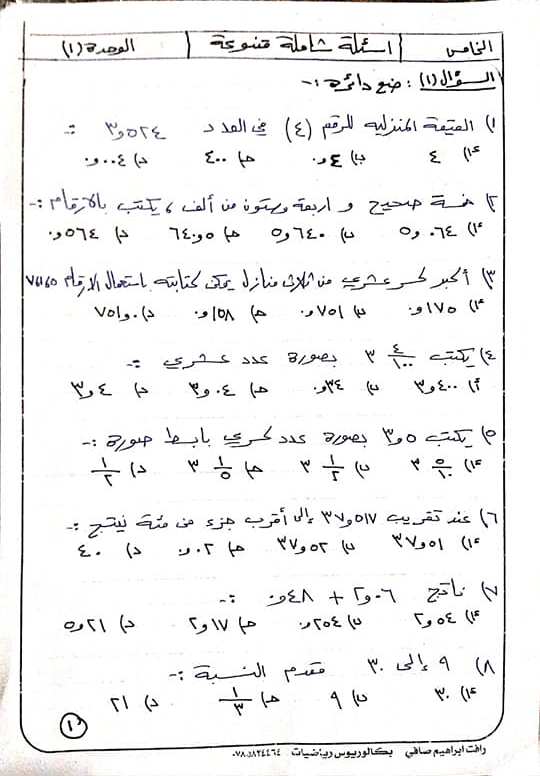 الخامس | اسئلة شاملة متنوعة | الوحدة (١)
السؤال (١) : ضع دائرة :-
١) القيمة المنزلية للرقم (٤) في العدد ٣و٥٢٤ :-
أ) ٤ ب) ٤و٠ جـ) ٤٠٠ د) ٠٠٤و٠
٢) خمسة صحيح و اربعة وستون من ألف ، يكتب بالأرقام :-
أ) ٠٦٤و٥ ب) ٦٤٠و٥ جـ) ٥و٦٤٠ د) ٥٦٤و٠
٣) أكبر كسر عشري من ثلاث منازل يمكن كتابته باستعمال الارقام
أ) ١٧٥و٠ ب) ٧٥١و٠ جـ) ١٥٨و٠ د) ٠و٧٥١
٤) يكتب ٣ ٤/١٠٠ بصورة عدد عشري :-
أ) ٤٠٠و٣ ب) ٣٤و٠ جـ) ٠٤و٣ د) ٤و٣
٥) يكتب ٥و٣ بصورة عدد كسري بابسط صورة :-
أ) ٣ ٥/١٠ ب) ٣ ١/٢ جـ) ٣ ١/٥ د) ١/٢
٦) عند تقريب ٥١٧و٣٧ إلى أقرب جزء من مئة ينتج :-
أ) ٥١و٣٧ ب) ٥٢و٣٧ جـ) ٠٢و٠ د) ٤٠
٧) ناتج ٠٦و٢ + ٤٨و٠ :-
أ) ٥٤و٢ ب) ٢٥٤و٠ جـ) ١٧و٢ د) ٢١و٥
٨) ٩ إلى ٣٠ مقدم النسبة :-
أ) ٣٠ ب) ٩ جـ) ١/٣ د) ٢١
١
رافت ابراهيم صافي بكالوريوس رياضيات